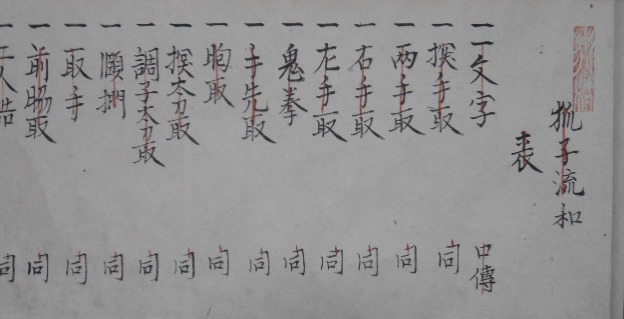 狐子流和
表
一 一文字 口傳
一 捩手取 同
一 両手取 同
一 右手取 同
一 左手取 同
一 鬼拳 同
一 手先取 同
一 胸取 同
一 捩太刀取 同
一 調子太刀取 同
一 取手 同
一 前脇取 同